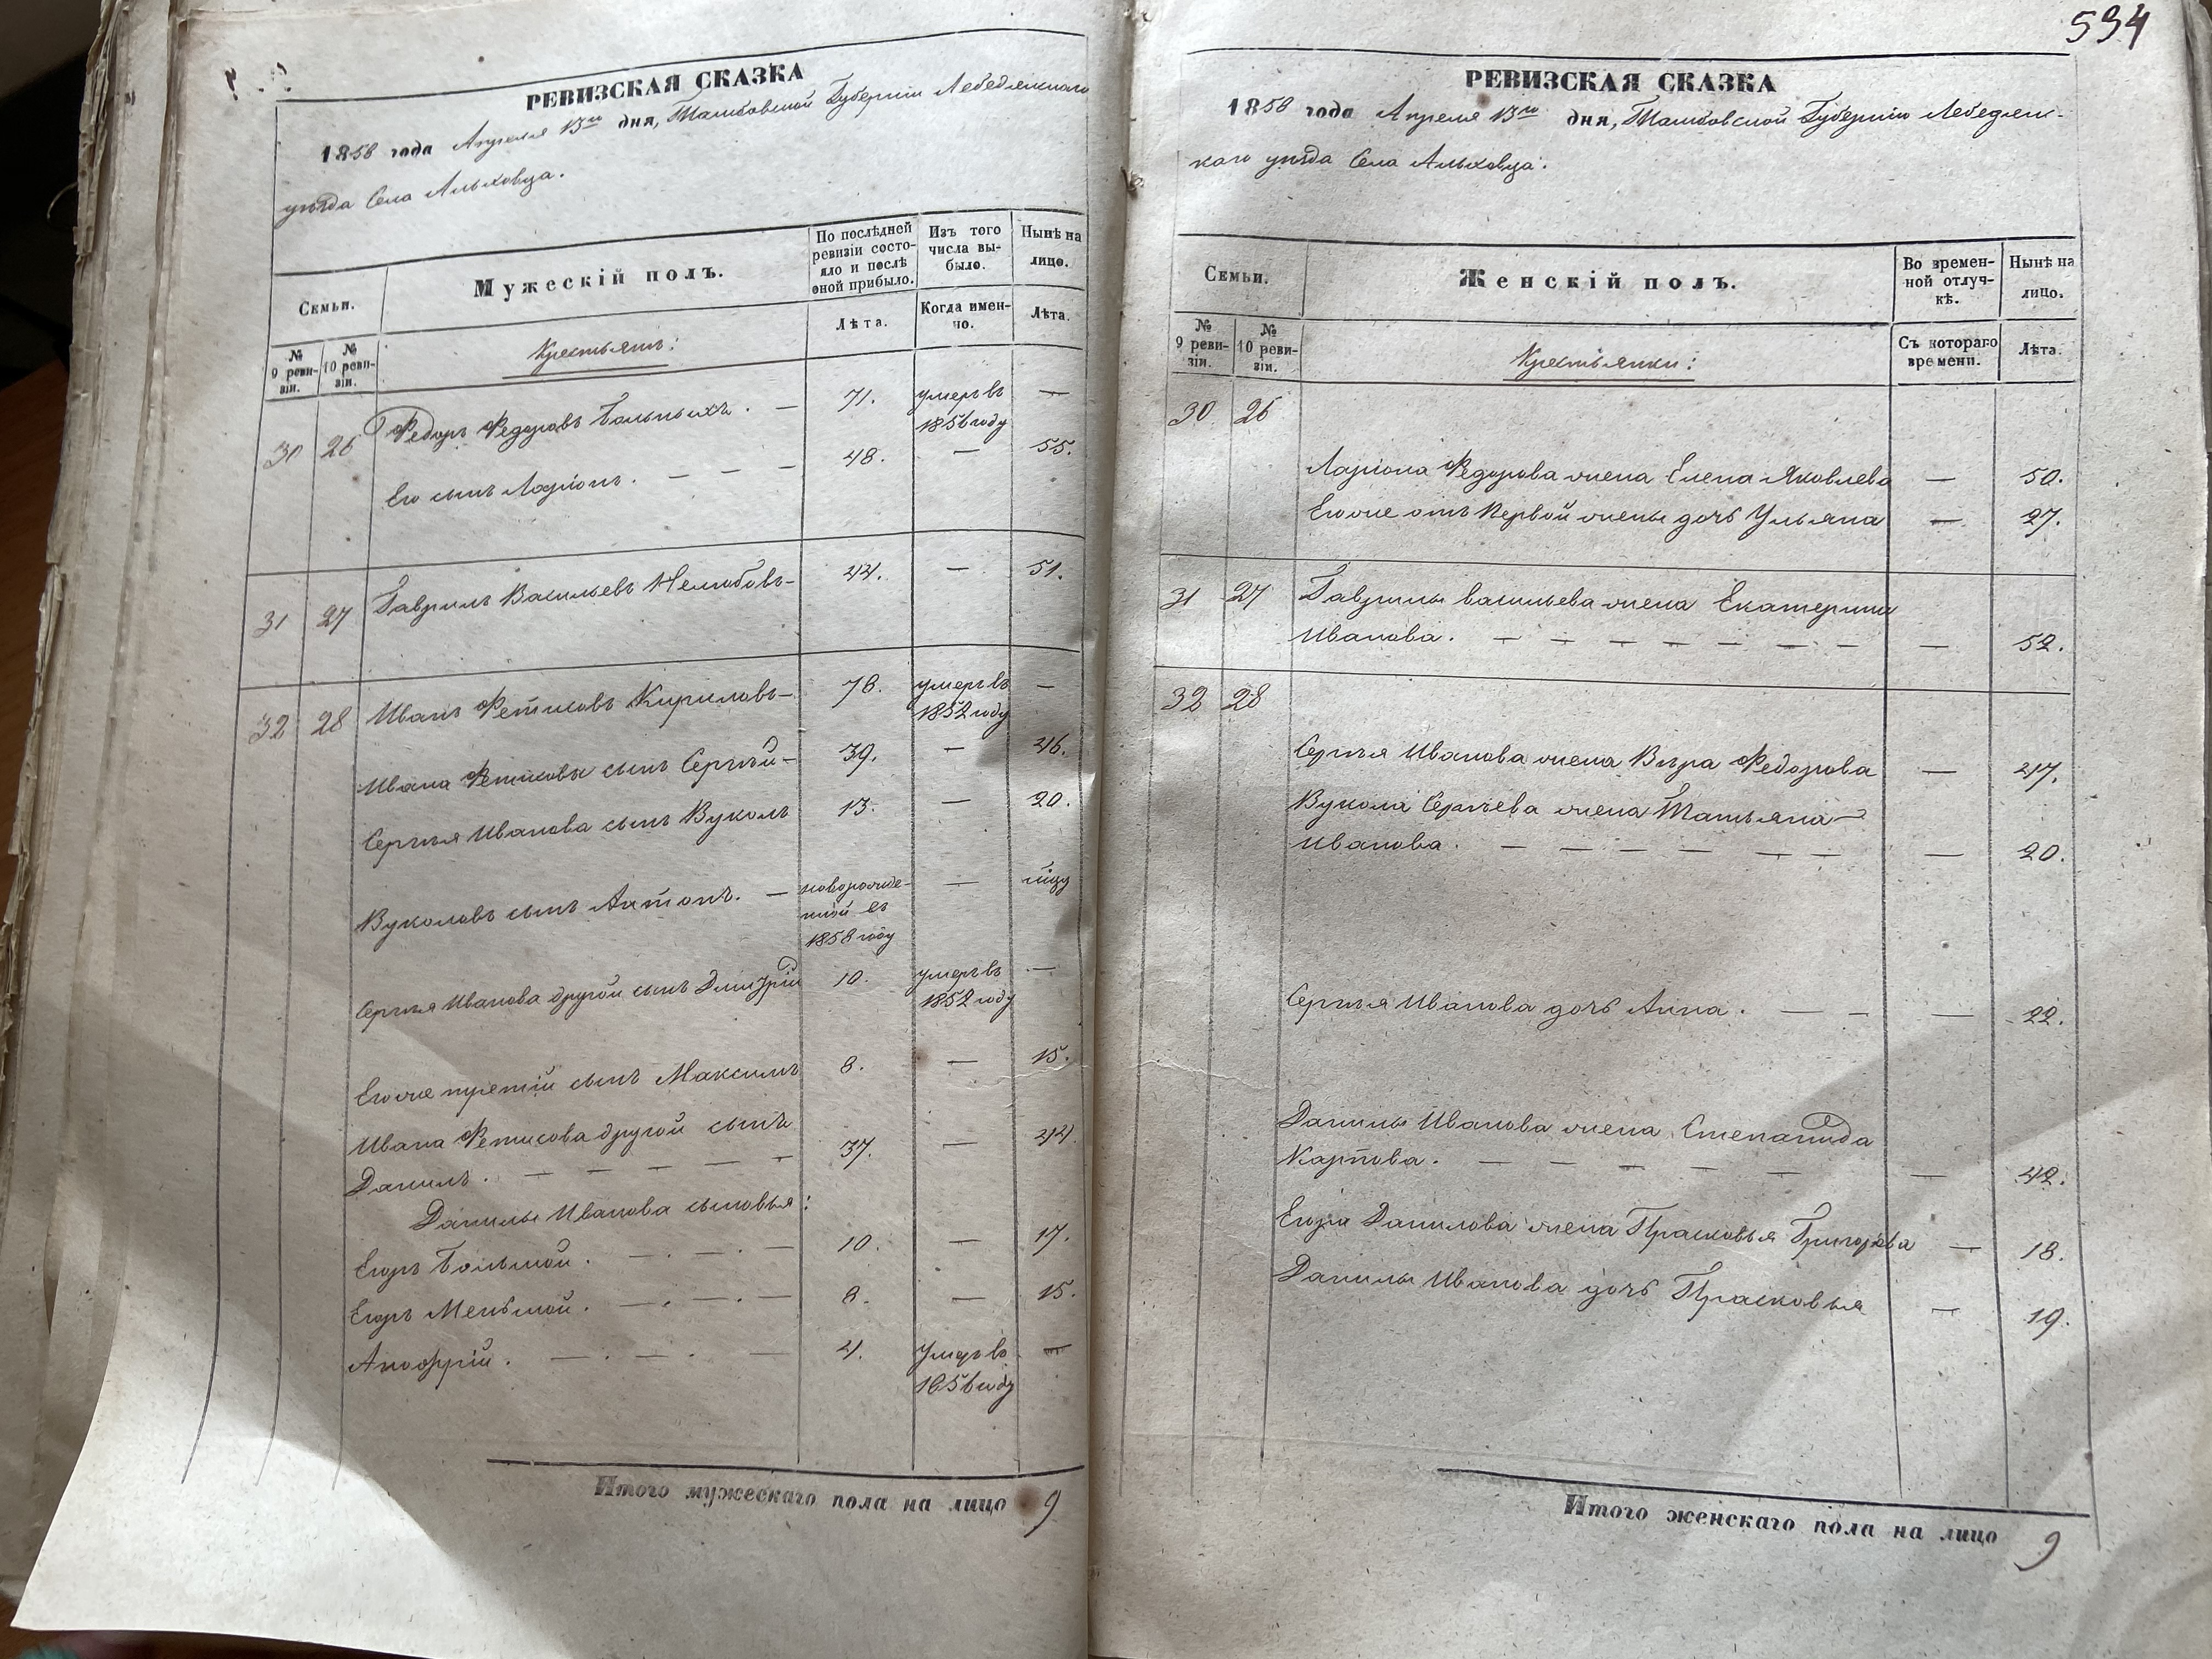 РЕВИЗСКАЯ СКАЗКА
1858 года Апреля 13го дня, Тамбовской Губернiи Лебедянскаго
уѣзда Села Альховца.
Семьи.
Мужескій полъ.
По послѣдней ревизіи состояло и послѣ оной прибыло.
Изъ того числа выбыло.
Нынѣ на лицо.
№ 9 ревизіи.
№ 10 ревизіи.
Лѣта.
Когда именно.
Лѣта.
Крестьянъ:
30 26 Федоръ Федоровъ Больныхъ. — 71. умеръ въ 1856 году —
Его сынъ Ларіонъ. — — — 48. — 55.
31 27 Гаврилъ Васильевъ Нелюбовъ — 44. — 51.
32 28 Иванъ Фетисовъ Кириловъ — 78. умеръ въ 1852 году —
Ивана Фетисова сынъ Сергѣй — 39. — 46.
Сергѣя Иванова сынъ Вуколъ 13. — 20.
Вуколовъ сынъ Антонъ. — новорожденной въ 1858 году —
Сергѣя Иванова другой сынъ Дмитрій 10. умеръ въ 1852 году —
Его же третій сынъ Максимъ 8. — 15.
Ивана Фетисова другой сынъ
Данилъ. — — — — — 37. — 44.
Данилы Иванова сыновья:
Егоръ Большой. — . — . — 10. — 17.
Егоръ Меньшой. — . — . — 8. — 15.
Анофрій. — . — . — 4. умеръ въ 1856 году —
Итого мужескаго пола на лицо 9
594
РЕВИЗСКАЯ СКАЗКА
1858 года Апреля 13го дня, Тамбовской Губернiи Лебедян-
скаго уѣзда Села Альховца.
Семьи.
Женскій полъ.
Во временной отлучкѣ.
Нынѣ на лицо.
№ 9 ревизіи.
№ 10 ревизіи.
Съ котораго времени.
Лѣта.
Крестьянки:
30 26
Ларіона Федорова жена Елена Яковлева — 50.
Его же отъ Первой жены дочь Ульяна — 27.
31 27 Гаврилы Васильева жена Екатерина
Иванова. — — — — — — — — 52.
32 28
Сергѣя Иванова жена Вѣра Федорова — 47.
Вукола Сергѣева жена Татьяна —
Иванова. — — — — — — — 20.
Сергѣя Иванова дочь Анна. — — — 22.
Данилы Иванова жена Степанида
Карпова. — — — — — — 42.
Егора Данилова жена Прасковья Григорьева — 18.
Данилы Иванова дочь Прасковья — 19.
Итого женскаго пола на лицо 9